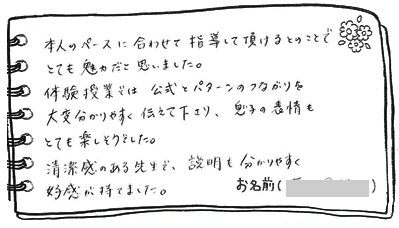 本人のペースに合わせて指導して頂けるとのことで
とても魅力だと思いました。
体験授業では公式とパターンのつながりを
大変分かりやすく伝えて下さり、息子の表情も
とても楽しそうでした。
清潔感のある先生で、説明も分かりやすく
好感が持てました。
お名前( )